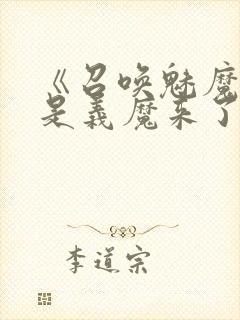 《召唤魅魔
是義魔来了
李道宗